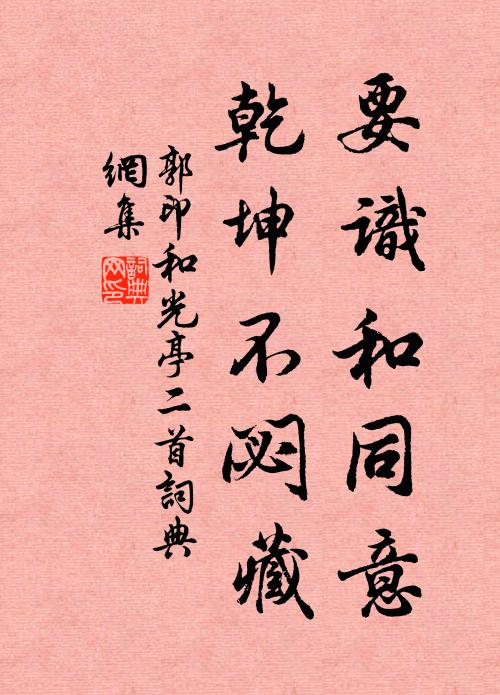 要識和同意
乾坤不閟藏
郭印和光亭二首詞典
網集
詞典網印